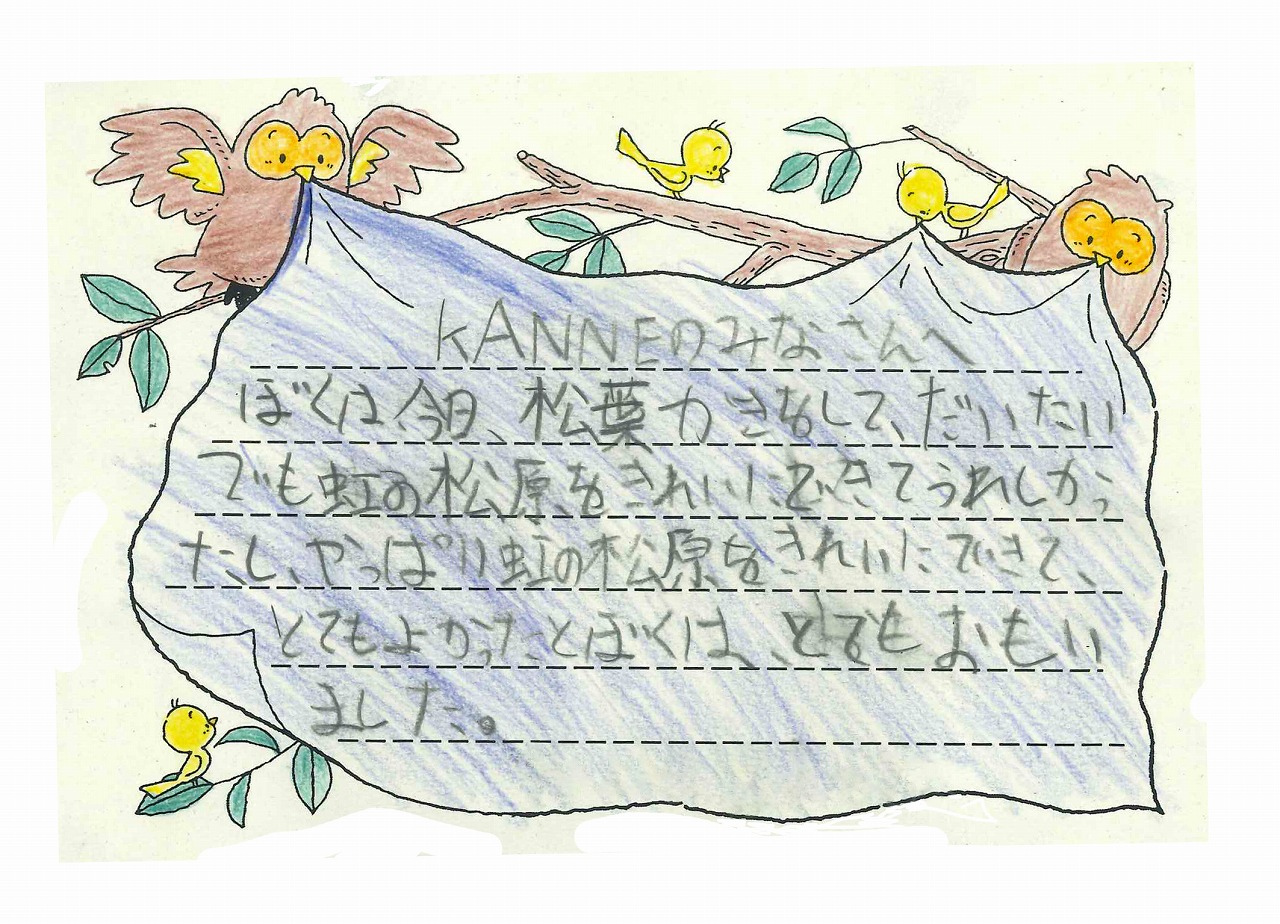 KANNEのみなさんへ
ぼくは今日、松葉カきをして、だいたい
でも虹の松原をきれいにできてうれしかっ
たし、やっぱり虹の松原をきれいにできて、
とてもよかったとぼくは、とてもおもい
ました。